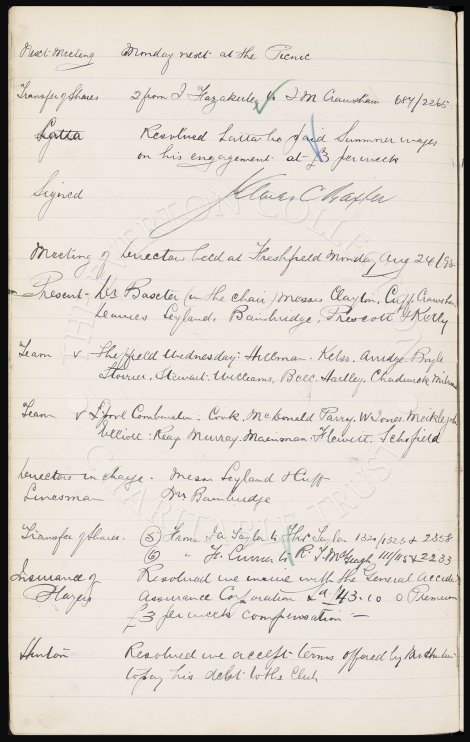 Next Meeting Monday next at the Picnic
Transfer of Shares 2 from J Hazakerley to J M Crawshaw 687/2265
Latta Resolved Latta be paid Summer wages
on his engagement at £3 per week
Signed James C Baxter
Meeting of Directors held at Freshfield Monday Aug 24/96
Present - Dr Baxter (in the chair) Messrs Clayton, Cuff, Crawshaw
Leavies Leyland, Bainbridge, Prescott & Kelly
Team v Sheffield Wednesday: Hillman. Kelso. Arridge. Boyle
Storrier. Stewart. Williams, Bell. Hartley. Chadwick Milward
Team v L'pool Combination: Cook, McDonald Parry, W Jones. Meiklejohn
Elliott. Reay Murray. Maenman. Flewitt. Schofield
Directors in charge. Messrs Leyland & Cuff
Linesman Mr Bainbridge
Transfer of Shares. (5) From Ja Taylor to Thos Taylor 1320/1323 & 2358
(6) " H. Currier to R. J. McGeagh 111/115 & 2233
Insurance of Resolved we insure with the General Accident
Players Assurance Corporation Ld £43.10.0 Premium
£3 per week compensation -
Hinton Resolved we accept terms offered by Mr Hinton
to pay his debt to the Club
THE EVERTON COLLECTION
CHARITABLE TRUST